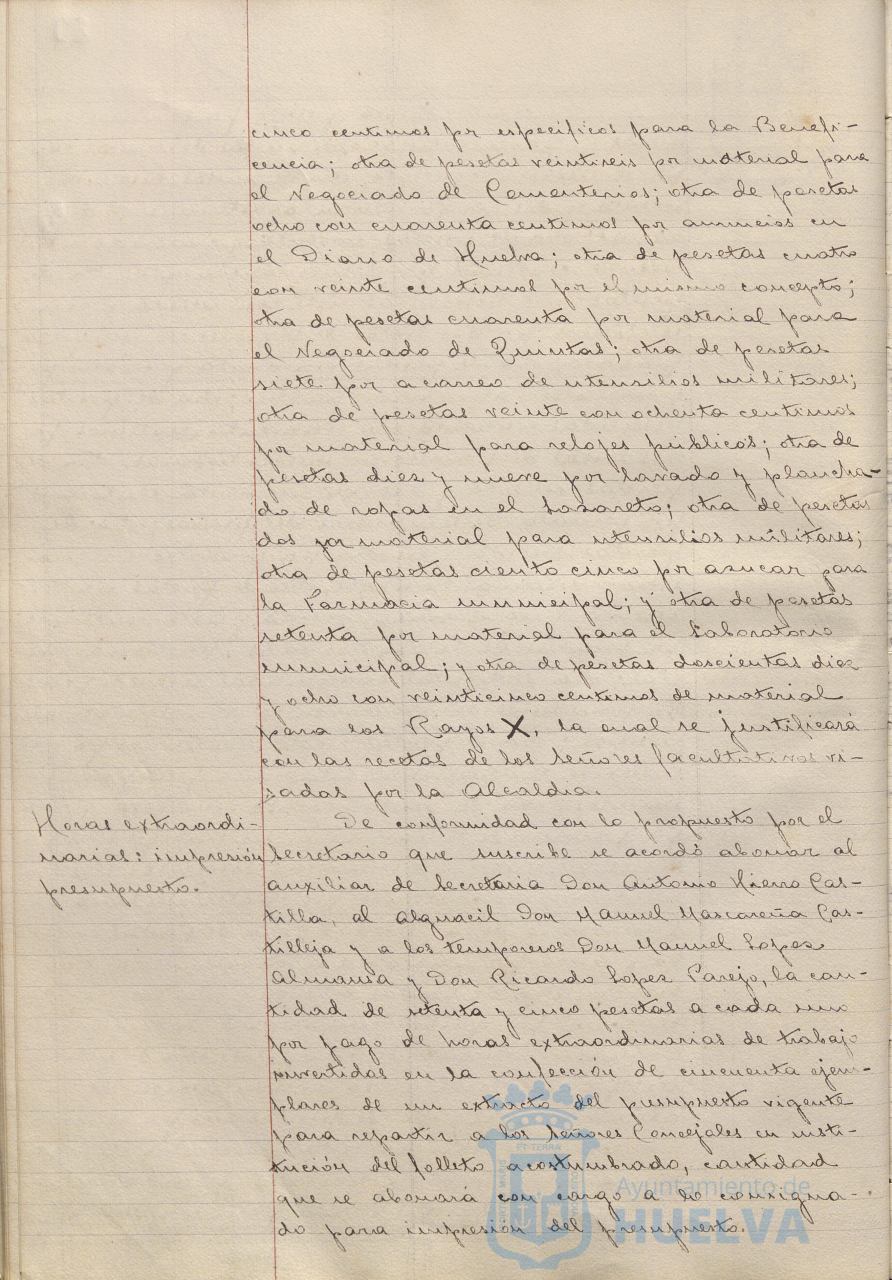 cinco centimos por especificos para la Benefi-
cencia; otra de pesetas veintiseis por material para
el Negociado de Cementerios; otra de pesetas
ocho con cuarenta centimos por anuncios en
el Diario de Huelva; otra de pesetas cuatro
con veinte centimos por el mismo concepto;
otra de pesetas cuarenta por material para
el Negociado de Quintas; otra de pesetas
siete por acarreo de utensilios militares;
otra de pesetas veinte con ochenta centimos
por material para relojes públicos; otra de
pesetas diez y nueve por lavado y plancha-
do de ropas en el Lazareto; otra de pesetas
dos por material para utensilios militares;
otra de pesetas ciento cinco por azucar para
la Farmacia municipal; y otra de pesetas
setenta por material para el Laboratorio
municipal; y otra de pesetas doscientas diez
y ocho con veinticinco centimos de material
para los Rayos X, la cual se justificará
con las recetas de los Señores facultativos vi-
sadas por la Alcaldia.
Horas extraordi-
narias: impresión
presupuesto.
De conformidad con lo propuesto por el
Secretario que suscribe se acordó abonar al
auxiliar de Secretaria Don Antonio Hierro Cas-
tilla, al Alguacil Don Manuel Mascareña Cas-
tilleja y a los temporeros Don Manuel Lopez
Almansa y Don Ricardo Lopez Parejo, la can-
tidad de setenta y cinco pesetas a cada uno
por pago de horas extraordinarias de trabajo
invertidas en la confección de cincuenta ejem-
plares de un extracto del presupuesto vigente
para repartir a los Señores Concejales en susti-
tución del folleto acostumbrado, cantidad
que se abonará con cargo a lo consigna-
do para impresión del presupuesto.
Ayuntamiento de
HUELVA